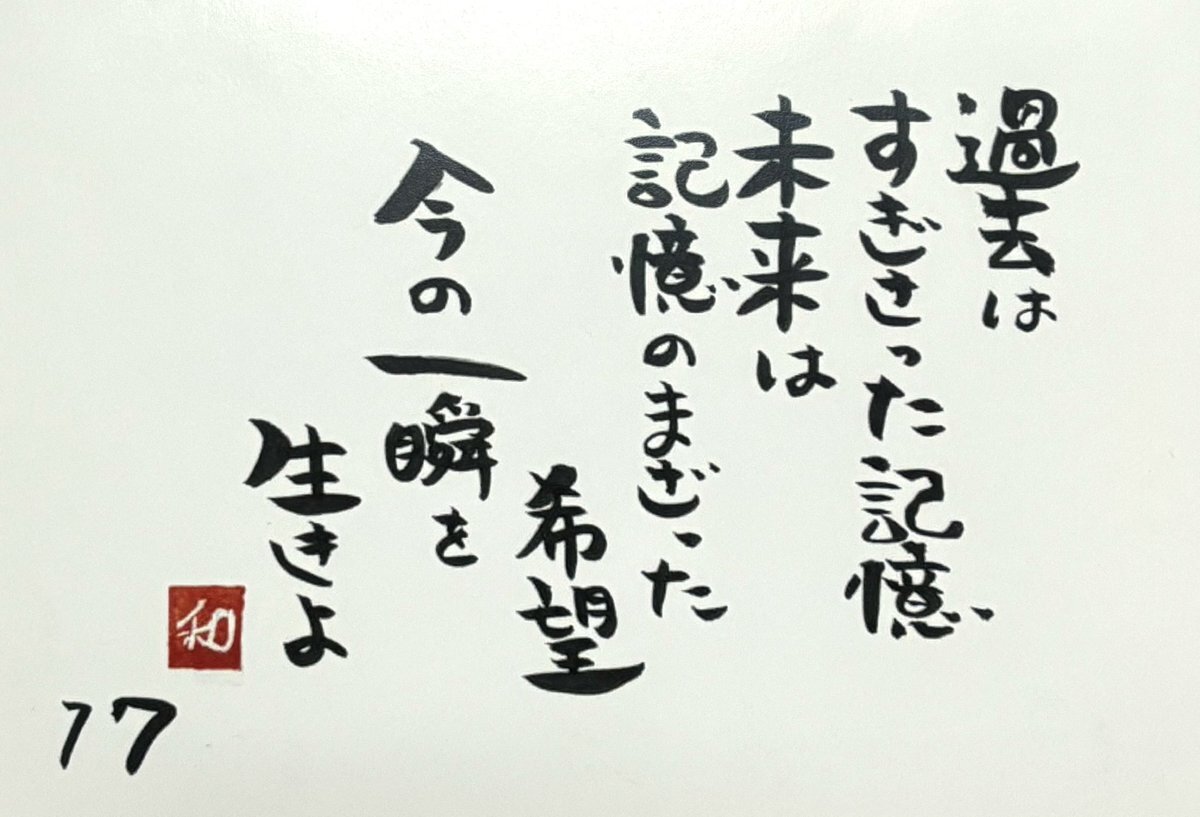 過去は
すぎさった記憶
未来は
記憶のまざった
希望
今の一瞬を
生きよ
和
17